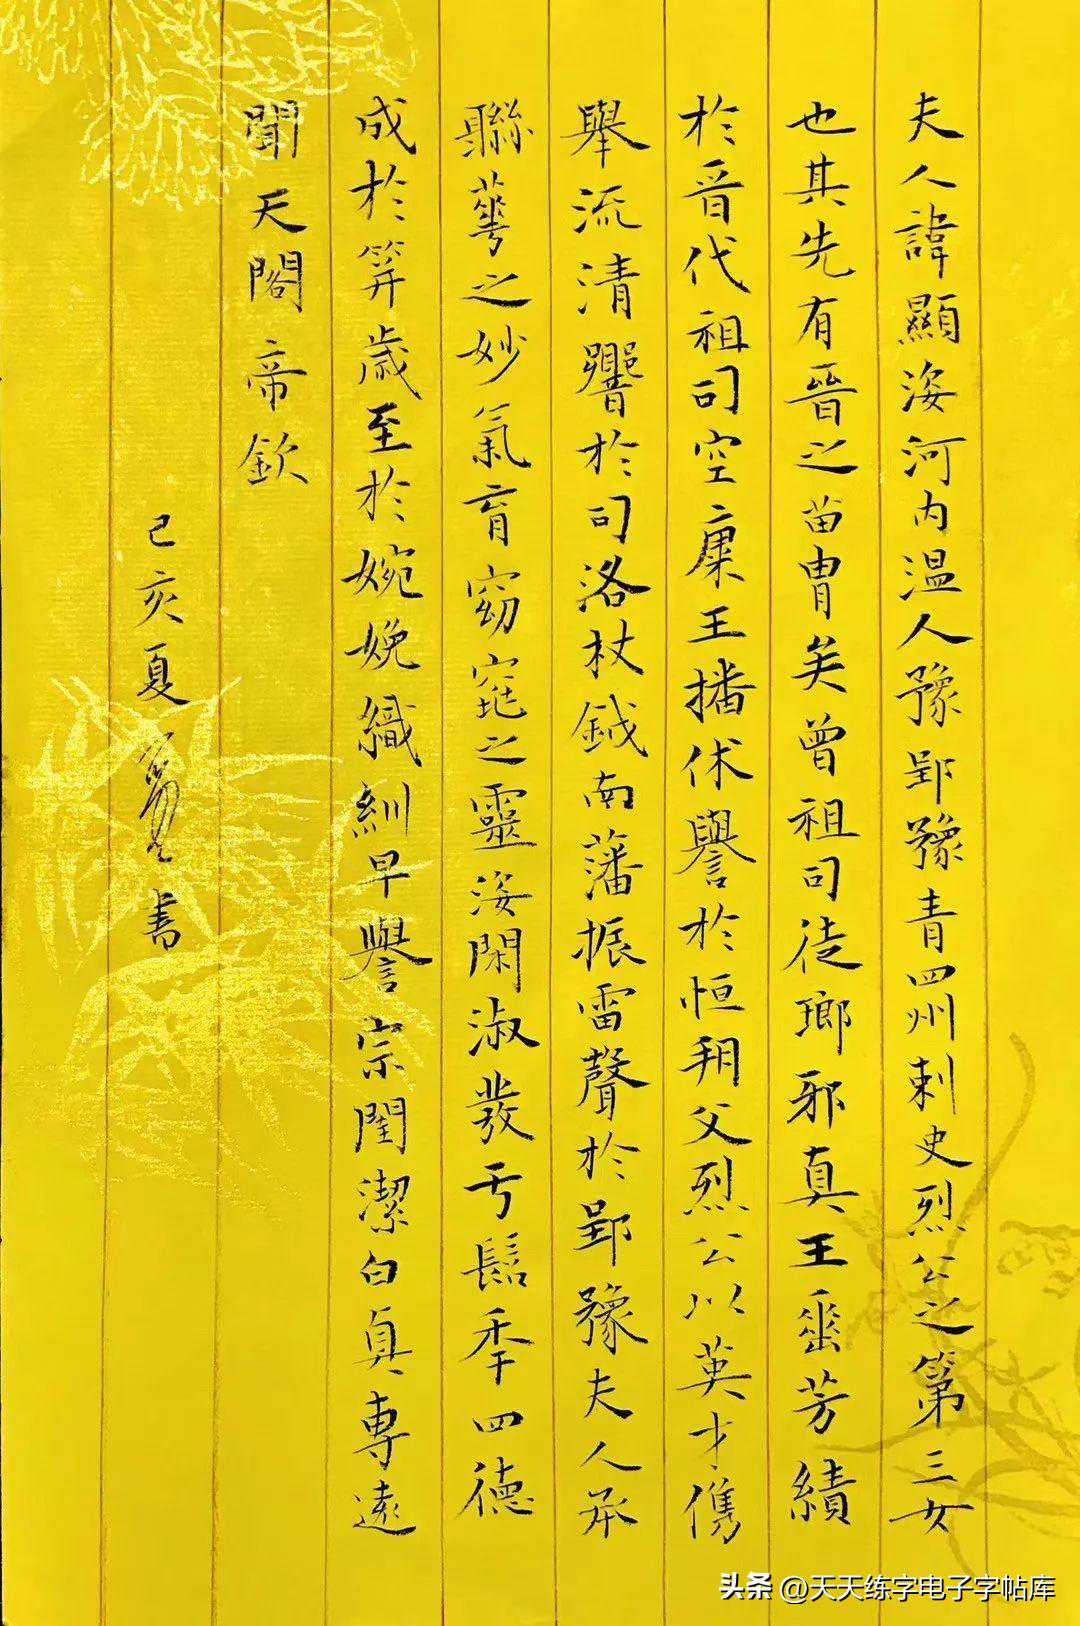 夫人諱顯姿河内温人豫郢豫青四州刺史烈公之第三女
也其先有晉之苗胄矣曾祖司徒瑯邪真王垂芳績
於晉代祖司空康王播休譽於恒朔父烈公以英才儁
舉流清響於司洛杖鉞南藩振雷聲於郢豫夫人承
聯華之妙氣育窈窕之靈姿閑淑發于髫年四德
成於笄歲至於婉娩織紃早譽宗閨潔白貞專遠
聞天閣帝欽
己亥夏 書
头条 @天天练字电子字帖库